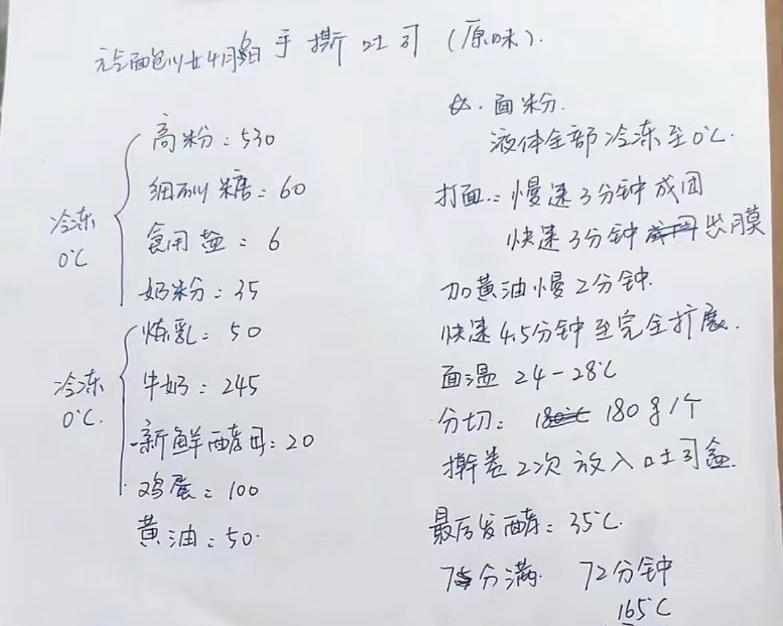 手撕吐司（原味）.
冷冻
0℃
高粉：530
细砂糖：60
食用盐：6
奶粉：35
冷冻
0℃.
炼乳：50
牛奶：245
新鲜酵母：20
鸡蛋：100
黄油：50.
面粉.
液体全部冷冻至0℃.
打面：慢速3分钟成团
快速3分钟出膜
加黄油慢2分钟.
快速4.5分钟至完全扩展.
面温 24-28℃
分切： 180g/个
擀卷2次 放入吐司盒.
最后发酵：35℃.
7分满. 72分钟
165℃